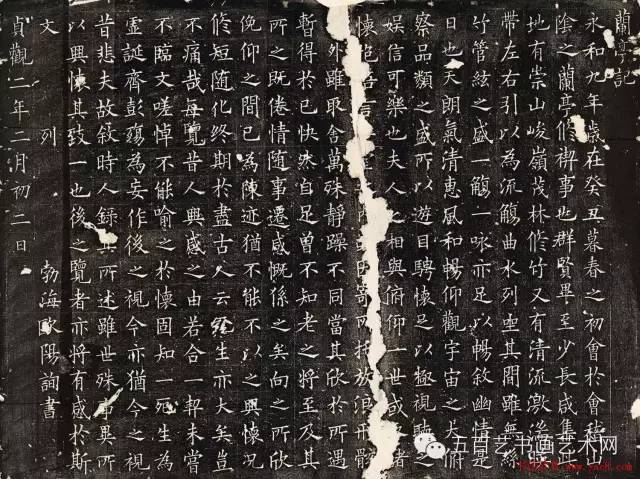 蘭亭記
永和九年歲在癸丑暮春之初會於會稽山
陰之蘭亭修禊事也群賢畢至少長咸集此
地有崇山峻嶺茂林修竹又有清流激湍
帶左右引以為流觴曲水列坐其間雖無絲
竹管絃之盛一觴一咏亦足以暢敘幽情是
日也天朗氣清惠風和暢仰觀宇宙之大俯
察品類之盛所以遊目騁懷足以極視聽之
娛信可樂也夫人之相與俯仰一世或者
懷抱悟言因寄所托放浪形骸
外雖取舍萬殊靜躁不同當其欣於所遇
暫得於己快然自足曾不知老之將至及其
所之既倦情隨事遷感慨係之矣向之所欣
俛仰之間已為陳迹猶不能不以之興懷況
修短隨化終期於盡古人云死生亦大矣豈
不痛哉每覽昔人興感之由若合一契未嘗
不臨文嗟悼不能喻之於懷固知一死生為
虛誕齊彭殤為妄作後之視今亦猶今之視
昔悲夫故敘時人錄其所述雖世殊事異所
以興懷其致一也後之覽者亦將有感於斯
文 列 勃海歐陽詢書
貞觀二年二月初二日
书画艺术网